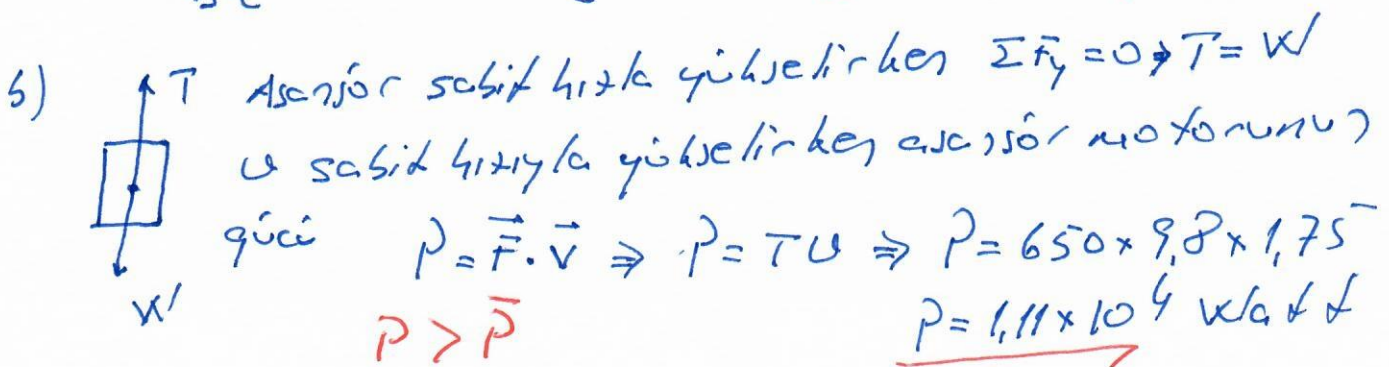 b) T Asansör sabit hızla yükselirken ΣF⃗y = 0 ⇒ T = W
υ sabit hızıyla yükselirken asansör motorunun
gücü P = F⃗ . V⃗ ⇒ P = Tυ ⇒ P = 650 × 9,8 × 1,75
W P > P̄ P = 1,11 × 10⁴ Watt